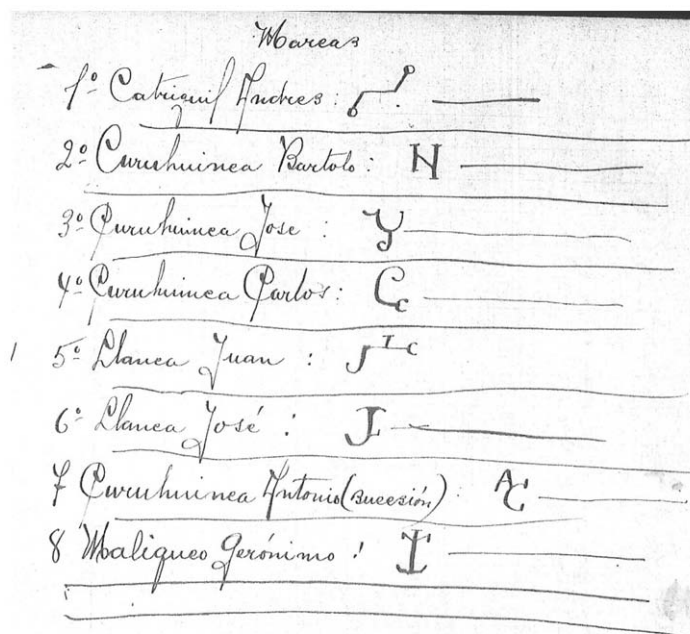 Marcas
1º Catriquil Andres:
2º Curuhuinca Bartolo: N
3º Curuhuinca Jose : Y
4º Curuhuinca Carlos: Cc
5º Llanca Juan : JLC
6º Llanca José : JL
7 Curuhuinca Antonio (sucesión): AC
8 Maliqueo Gerónimo :